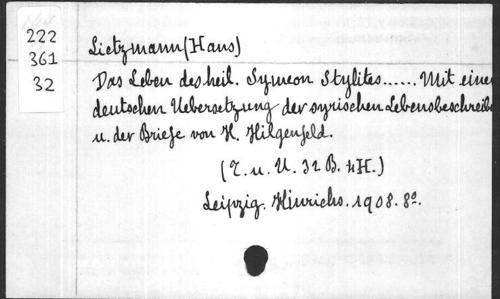 222
361
32
Lietzmann (Hans)
Das Leben des heil. Symeon Stylites...... Mit einer
deutschen Uebersetzung der syrischen Lebensbeschreib
u. der Briefe von H. Hilgenfeld.
(T. u. U. 32 B. 4 H.)
Leipzig. Hinrichs. 1908. 8º.